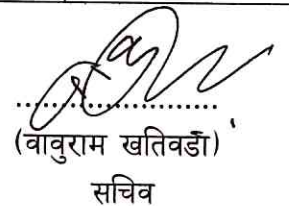 ....................
(वावुराम खतिवडा)
सचिव